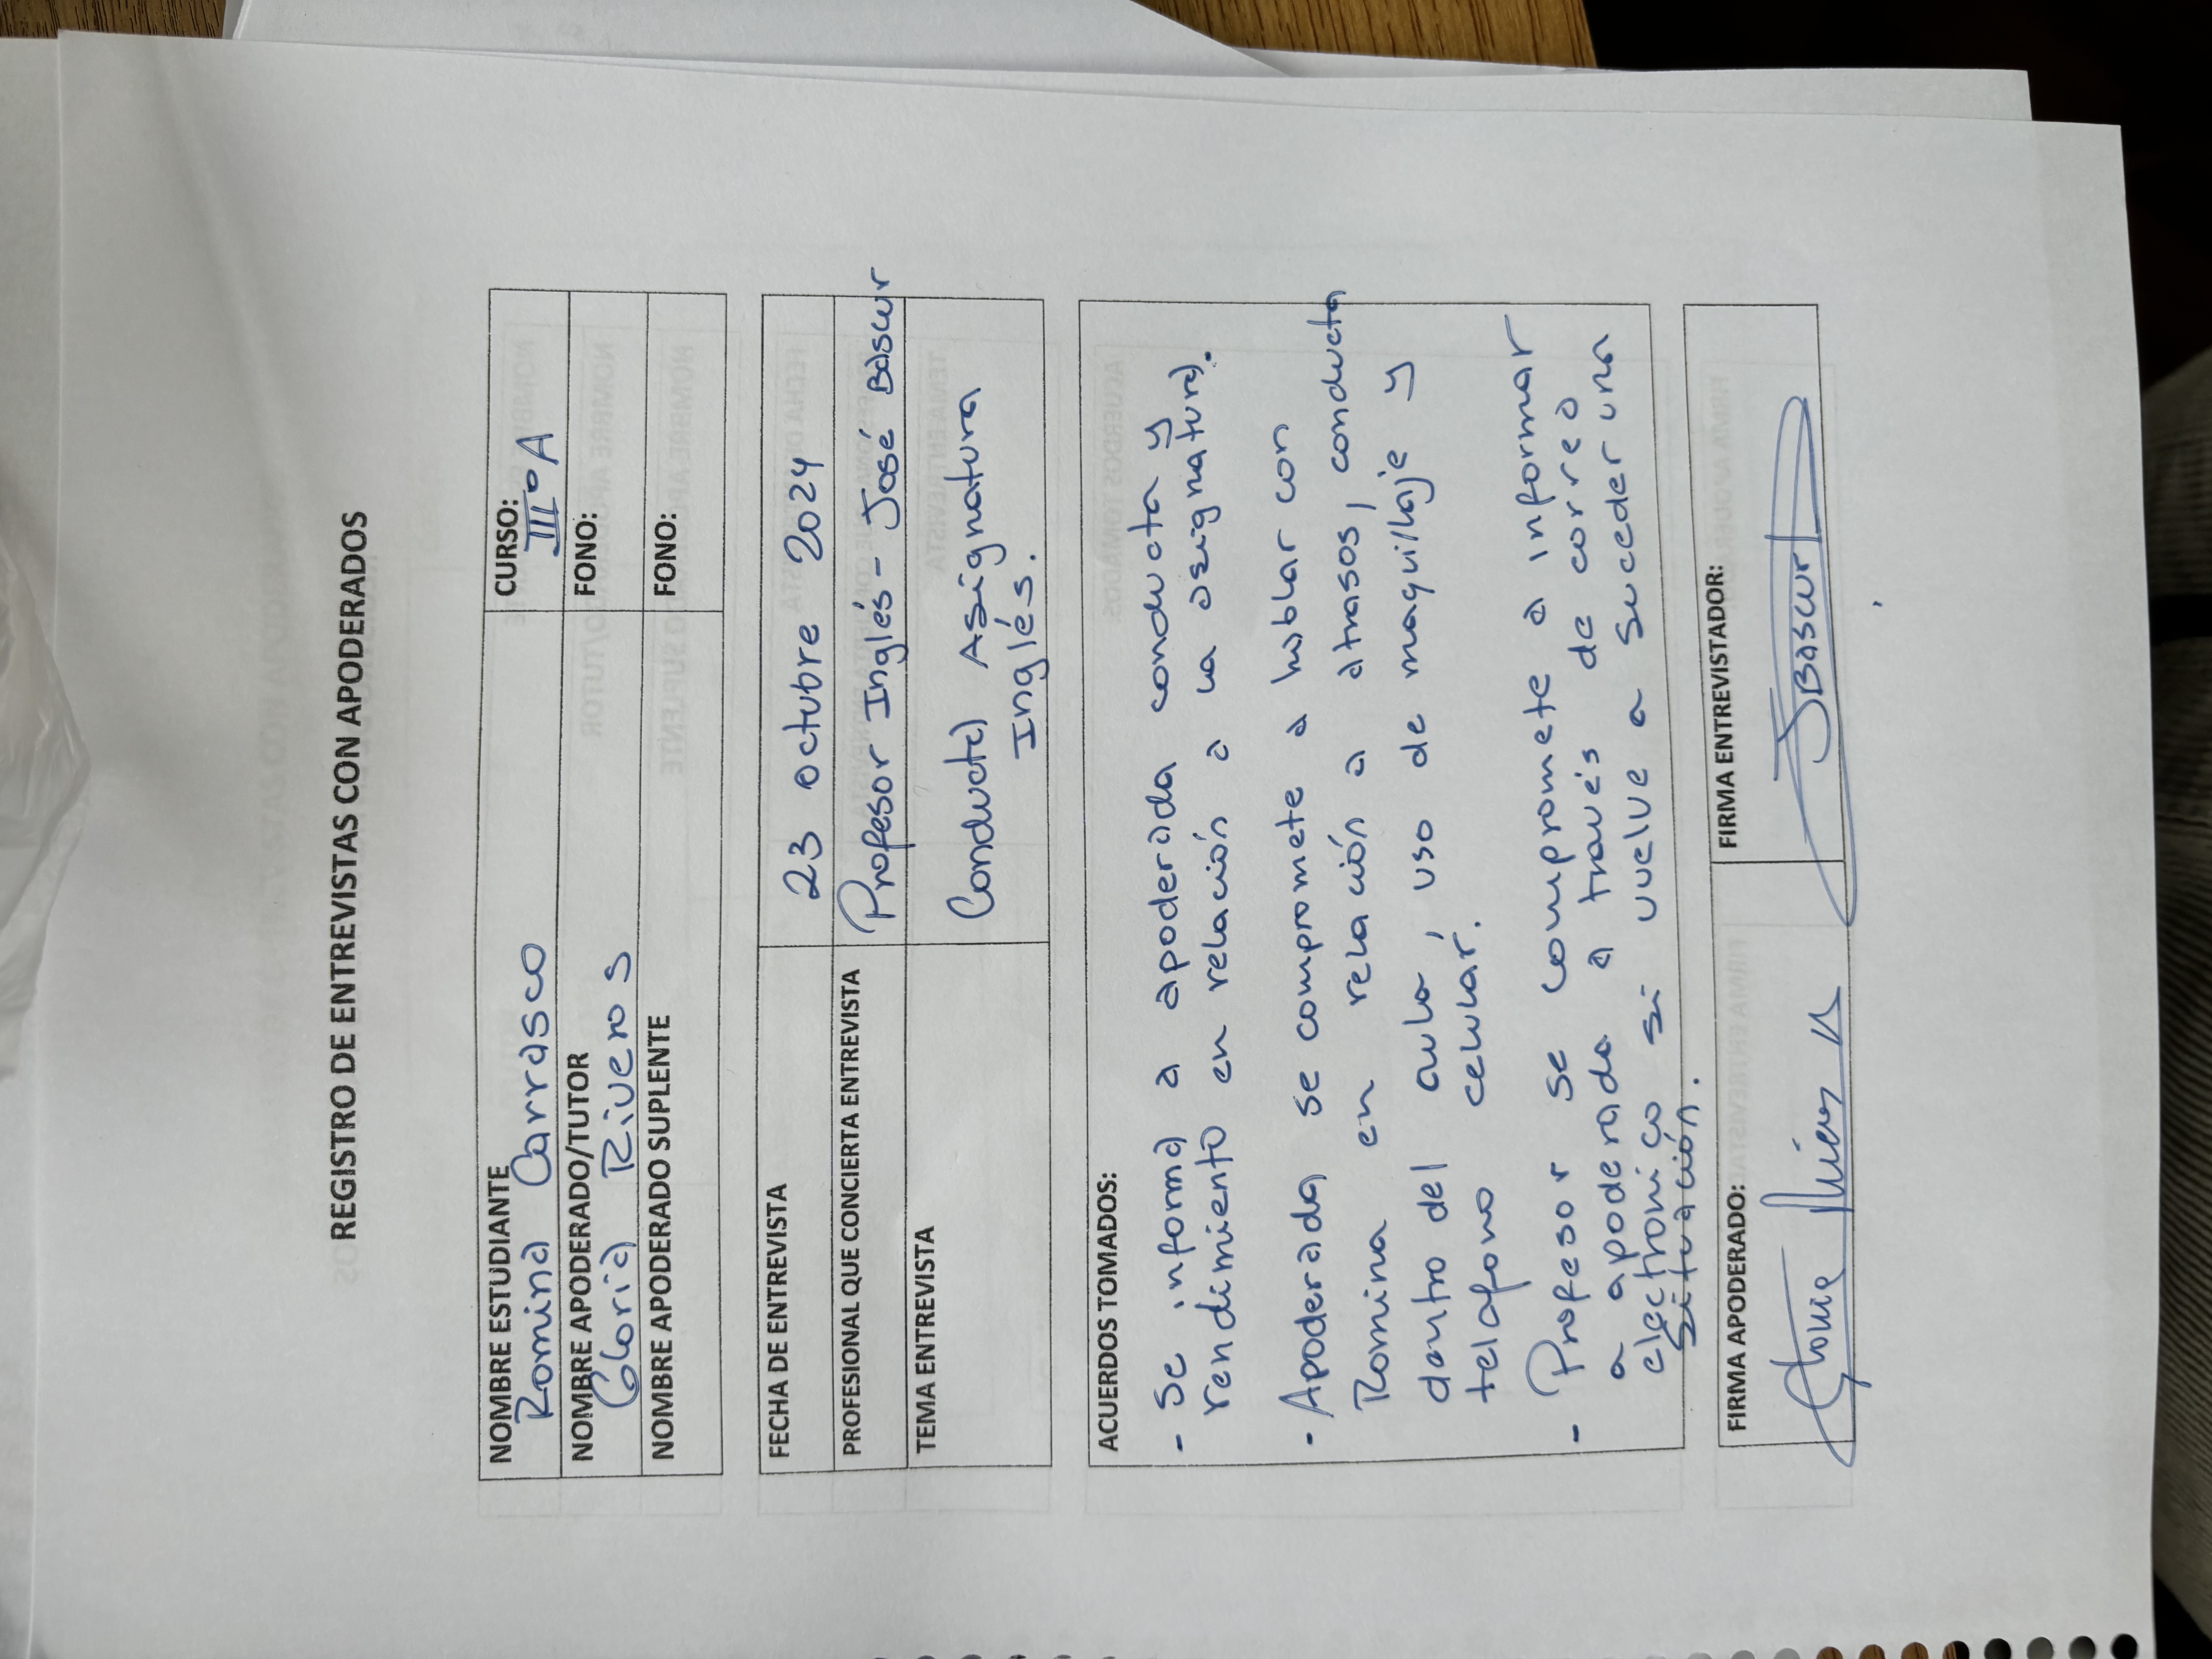 REGISTRO DE ENTREVISTAS CON APODERADOS
NOMBRE ESTUDIANTE CURSO:
Romina Carrasco III° A
NOMBRE APODERADO/TUTOR FONO:
Gloria Riveros
NOMBRE APODERADO SUPLENTE FONO:
FECHA DE ENTREVISTA 23 octubre 2024
PROFESIONAL QUE CONCIERTA ENTREVISTA Profesor Inglés - José Bascur
TEMA ENTREVISTA Conducta Asignatura
Inglés.
ACUERDOS TOMADOS:
- Se informa a apoderada conducta y
rendimiento en relación a la asignatura.
- Apoderada se compromete a hablar con
Romina en relación a atrasos, conducta
dentro del aula, uso de maquillaje y
telafono celular.
- Profesor se compromete a informar
a apoderada a través de correo
electronico si vuelve a suceder una
situación.
FIRMA APODERADO: FIRMA ENTREVISTADOR:
JBascur